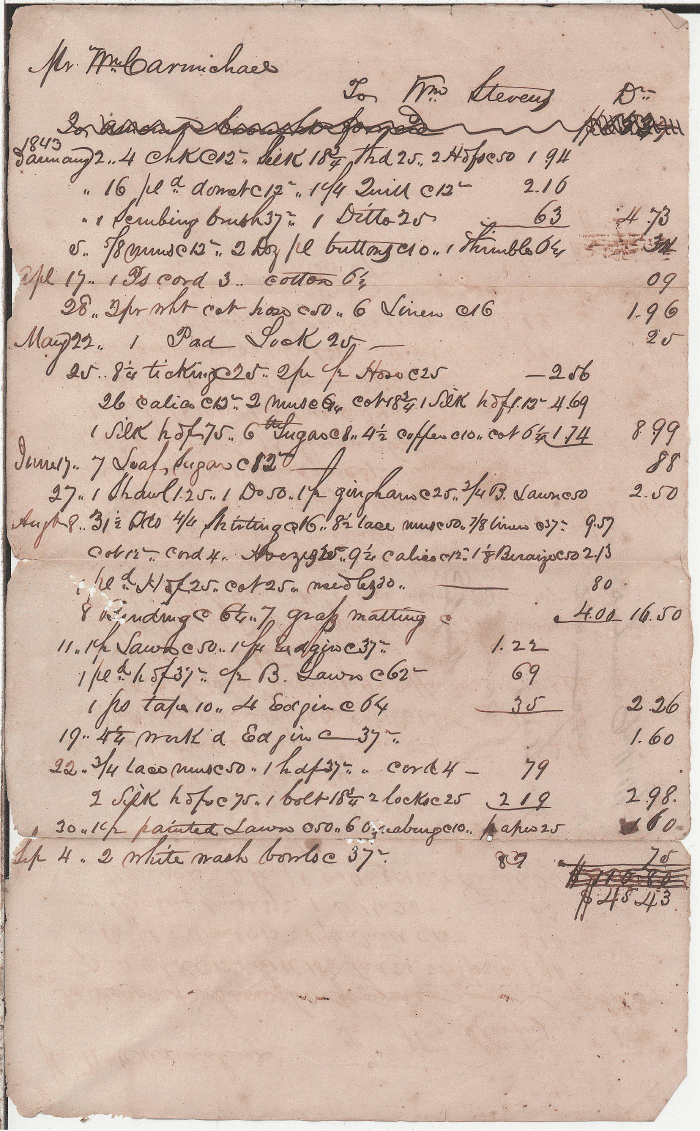 Mr. Wm Carmichael
To Wm Stevens Dr
To brought forward
1843
January 2 .. 4 chk c12 silk 18¾ thd 25 .. 2 Hdfs c50 1 94
" 16 pl d domet c12 .. 1¼ Quill c12 2.16
" 1 Scrubing brush 37 .. 1 Ditto 25 63 4 73
5 .. 5/8 musc 12 .. 2 Doz pl buttons c10 .. 1 Thimble 6¼ 34
Apl 17 .. 1 Ps cord 3 .. cotton 6¼ 09
28 .. 3 pr wht cot hose c50 .. 6 Linen c16 1.96
May 22 .. 1 Pad Lock 25 — 25
25 .. 8¼ ticking c25 .. 2 pr Hose c25 — 2 56
26 calico c12 .. 2 musc cot 18¾ 1 Silk hdf 1.12 4.69
1 Silk hdf 75 .. 6 Sugar c8 .. 4½ coffee c10 .. cot 6¼ 1.74 8.99
June 17 .. 7 Loaf Sugar c 12 88
27 .. 1 Shawl 1.25 .. 1 Do 50 .. 1 gingham c25 .. ¾ B. Lawn c50 2.50
Augt 8 .. 31½ 4/4 Shirting c16 .. 8½ lace musc 50 .. 7/8 linen c37 9.57
cot 12 .. cord 4 .. 9½ calico c12 .. 1 1/8 c50 2 13
1 pl d Hdf 25 .. cot 25 .. needles 30 .. — 80
8 Binding c 6¼ .. 7 grass matting c 4.00 16.50
11 .. Lawn c50 .. 1¼ Edgin c 37 1.22
1 pl d hdf 37 .. B. Lawn c62 69
1 ps tape 10 .. 4 Edgin c 6¼ 35 2.26
19 .. 4¼ work'd Edgin c 37 .. 1.60
22 .. ¾ lace musc 50 .. 1 hdf 37 .. cord 4 — 79
2 Silk hdfs c75 .. 1 bolt 18¾ 2 locks c25 2 19 2 98
30 .. painted Lawn c50 .. 6 Oznaburg c10 .. 25 1 60
Sep 4 .. 2 white wash bowls c 37 75
$ 45 43